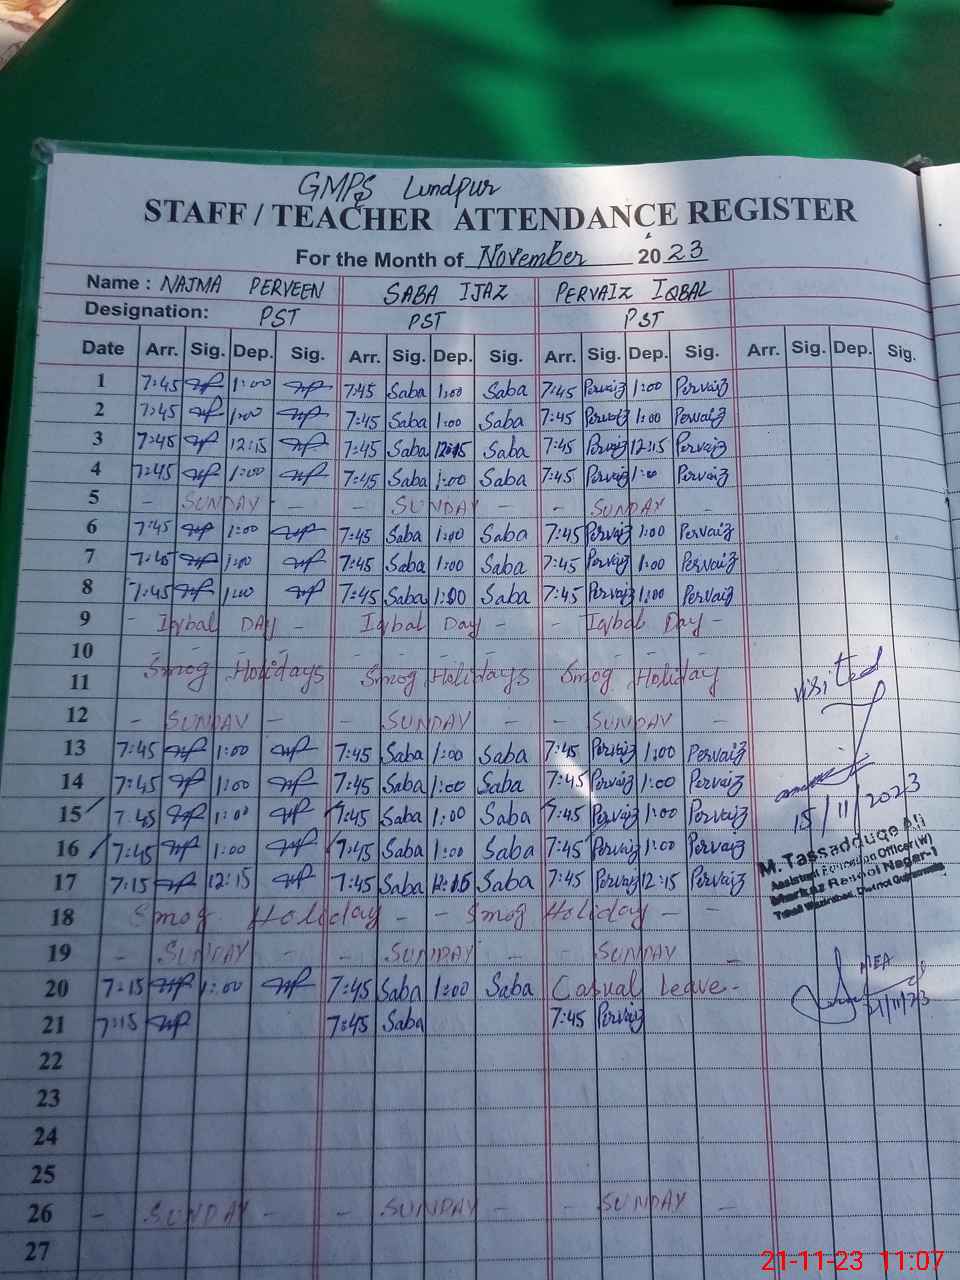 GMPS Lundpur
STAFF / TEACHER ATTENDANCE REGISTER
For the Month of November 2023
Name : NAJMA PERVEEN SABA IJAZ PERVAIZ IQBAL
Designation: PST PST PST
Date Arr. Sig. Dep. Sig. Arr. Sig. Dep. Sig. Arr. Sig. Dep. Sig. Arr. Sig. Dep. Sig.
1 7:45 1:00 7:45 Saba 1:00 Saba 7:45 Pervaiz 1:00 Pervaiz
2 7:45 1:00 7:45 Saba 1:00 Saba 7:45 Pervaiz 1:00 Pervaiz
3 7:45 12:15 7:45 Saba 12:15 Saba 7:45 Pervaiz 12:15 Pervaiz
4 7:45 1:00 7:45 Saba 1:00 Saba 7:45 Pervaiz 1:00 Pervaiz
5 - SUNDAY - - SUNDAY - - SUNDAY -
6 7:45 1:00 7:45 Saba 1:00 Saba 7:45 Pervaiz 1:00 Pervaiz
7 7:45 1:00 7:45 Saba 1:00 Saba 7:45 Pervaiz 1:00 Pervaiz
8 7:45 1:00 7:45 Saba 1:00 Saba 7:45 Pervaiz 1:00 Pervaiz
9 - Iqbal DAY - - Iqbal Day - - Iqbal Day -
10
Smog Holidays Smog Holidays Smog Holiday
11
visited
12 - SUNDAY - - SUNDAY - - SUNDAY -
13 7:45 1:00 7:45 Saba 1:00 Saba 7:45 Pervaiz 1:00 Pervaiz
14 7:45 1:00 7:45 Saba 1:00 Saba 7:45 Pervaiz 1:00 Pervaiz
15 7:45 1:00 7:45 Saba 1:00 Saba 7:45 Pervaiz 1:00 Pervaiz
15/11/2023
16 7:45 1:00 7:45 Saba 1:00 Saba 7:45 Pervaiz 1:00 Pervaiz
M. Tassadduqe Ali
Assistant Education Officer (W)
Markaz Rasool Nagar-1
Tehsil Wazirabad, District Gujranwala
17 7:15 12:15 7:45 Saba 12:15 Saba 7:45 Pervaiz 12:15 Pervaiz
18 Smog Holiday - - Smog Holiday - -
19 - SUNDAY - - SUNDAY - - SUNDAY -
20 7:15 1:00 7:45 Saba 1:00 Saba Casual Leave -
MEA
21/11/23
21 7:15 7:45 Saba 7:45 Pervaiz
22
23
24
25
26 - SUNDAY - - SUNDAY - - SUNDAY -
27
21-11-23 11:07